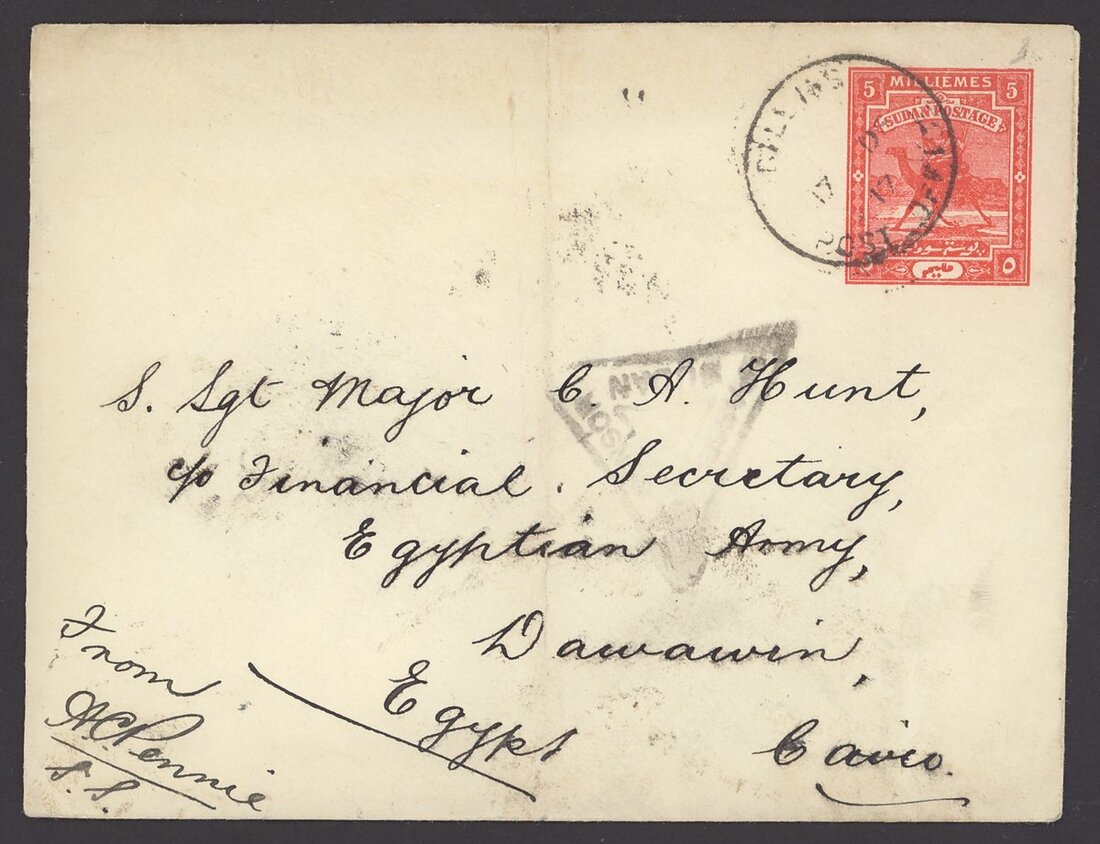 5 MILLIEMES 5
SUDAN POSTAGE
بوستة سودانية
مليم ٥
POST
17
S. Sgt Major C. A. Hunt,
c/o Financial. Secretary,
Egyptian Army,
Dawawin,
Egypt Cairo.
From
A.C. Pennie
S. S.